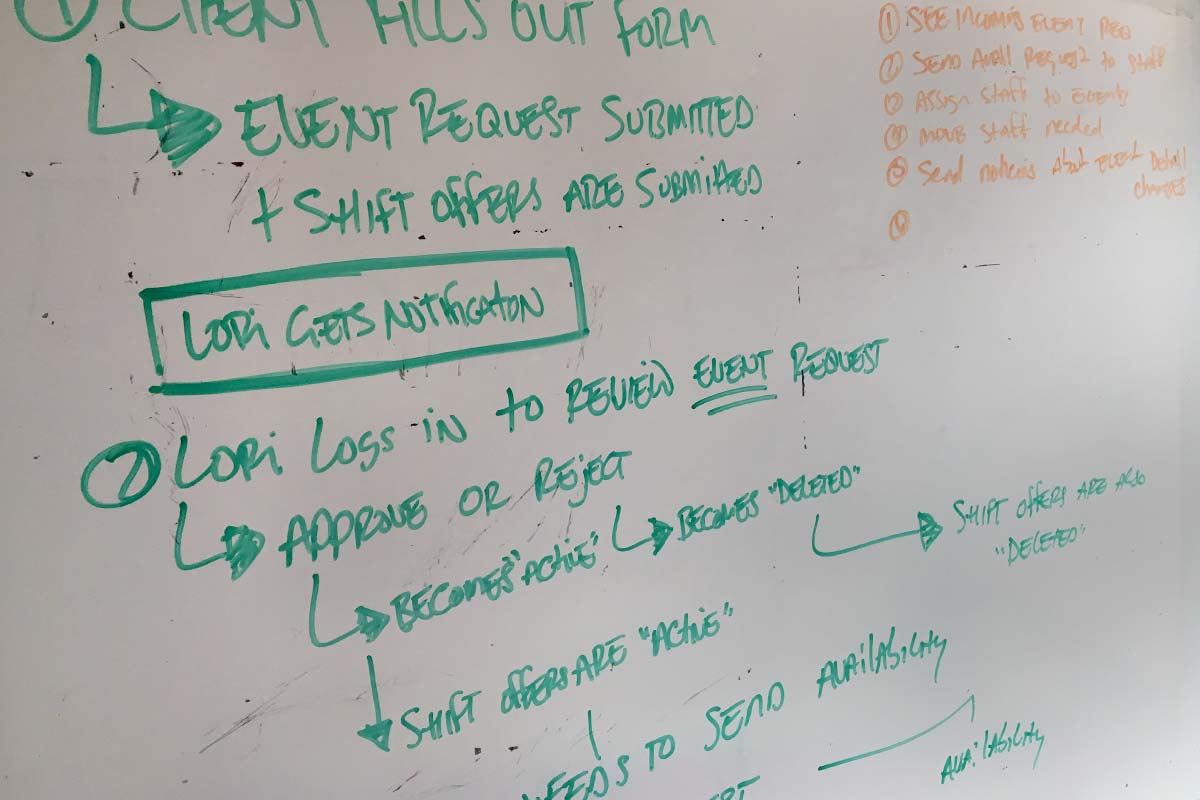 ① CLIENT FILLS OUT FORM
EVENT REQUEST SUBMITTED
+ SHIFT OFFERS ARE SUBMITTED
LORI GETS NOTIFICATON
② LORI LOGS IN TO REVIEW EVENT REQUEST
APPROVE OR REJECT
BECOMES "DELETED"
SHIFT OFFERS ARE ALSO
"DELETED"
BECOMES "ACTIVE"
SHIFT OFFERS ARE "ACTIVE"
NEEDS TO SEND AVAILABILITY
AVAILABILITY
① SEE INCOMING EVENT REQ
② SEND AVAIL REQUEST to staff
③ ASSIGN staff to EVENTS
④ staff needed
⑤ Send About EVENT Detail
changes
⑥